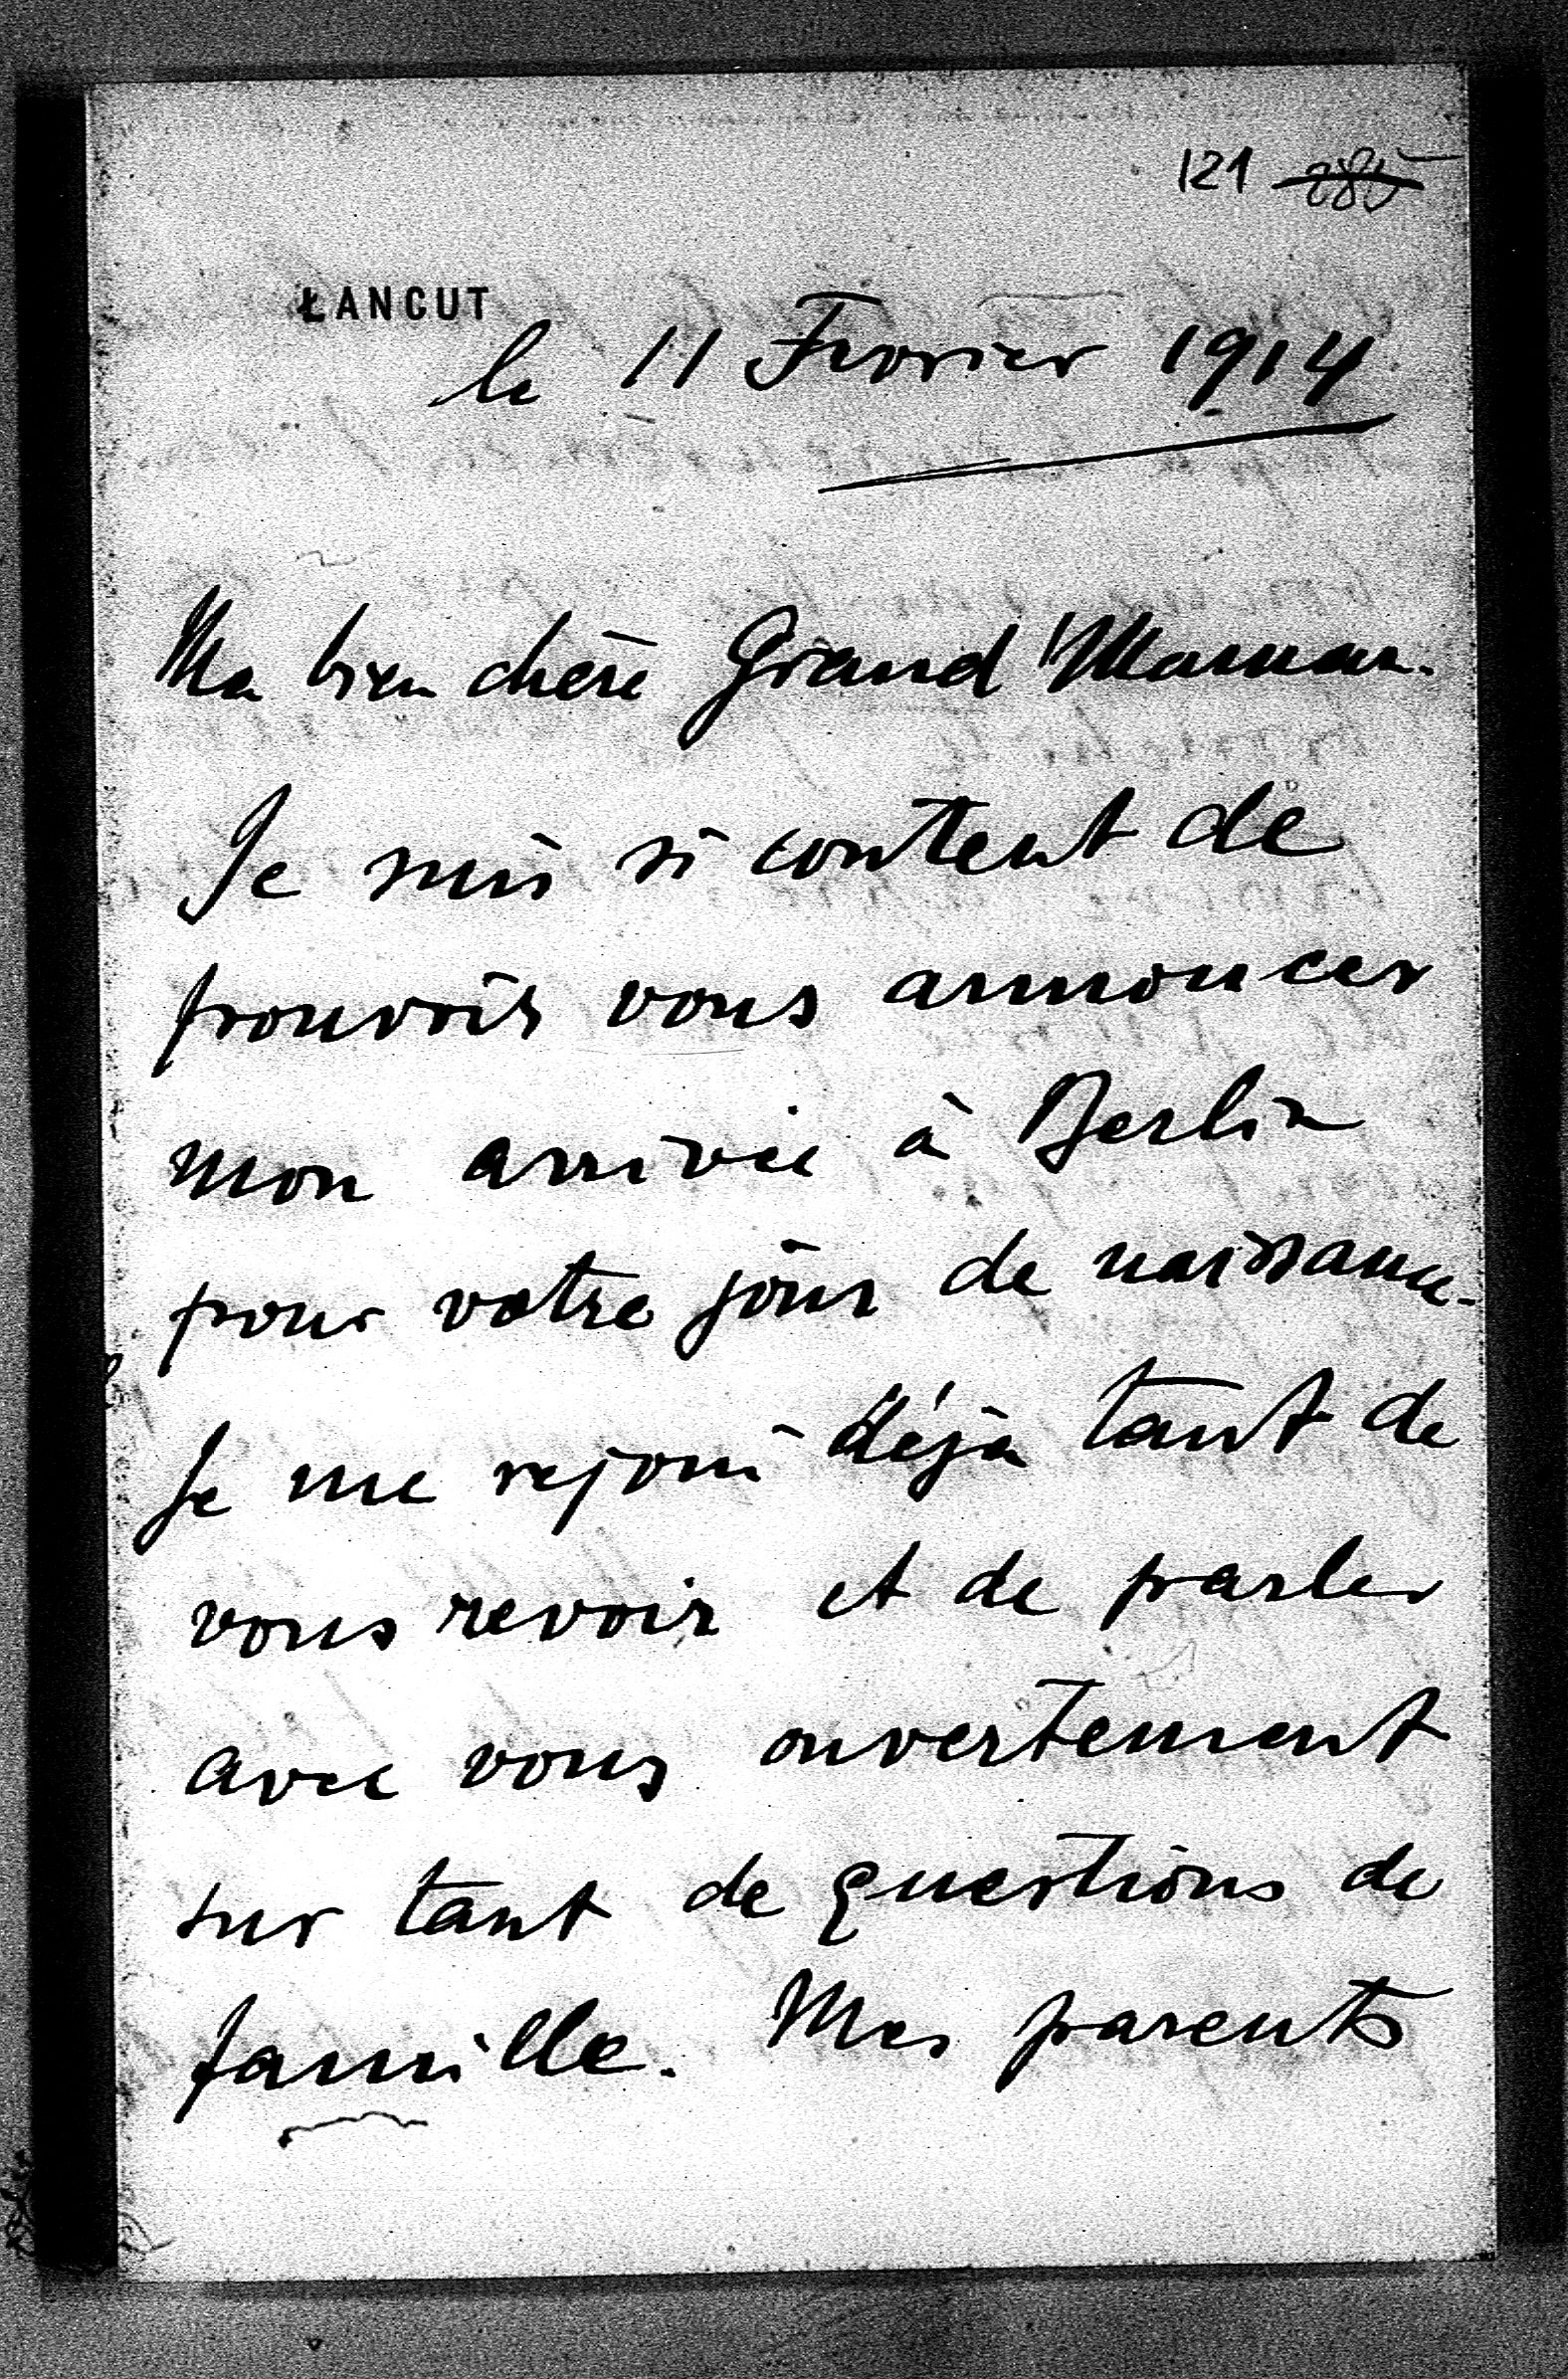 121 285
ŁANCUT
le 11 Fevrier 1914
Ma bien chère Grand'Maman.
Je suis si content de
pouvoir vous annoncer
mon arrivée à Berlin
pour votre jour de naissance.
Je me rejoui déjà tant de
vous revoir et de parler
avec vous ouvertement
sur tant de questions de
famille. Mes parents